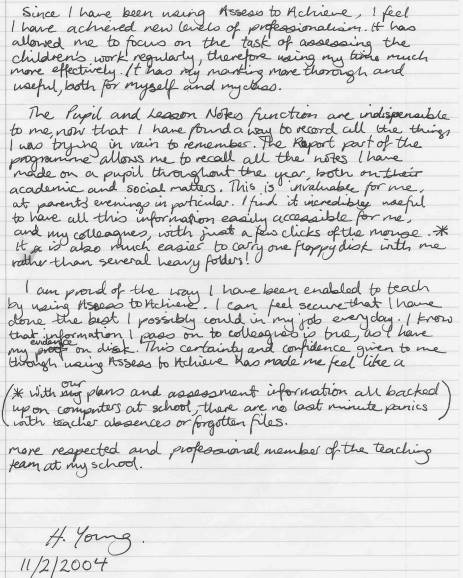 Since I have been using Assess to Achieve, I feel
I have achieved new levels of professionalism. It has
allowed me to focus on the task of assessing the
children's work regularly, therefore using my time much
more effectively. It has my marking more thorough and
useful, both for myself and my class.
The Pupil and Lesson Notes function are indispensible
to me, now that I have found a way to record all the things
I was trying in vain to remember. The Report part of the
programme allows me to recall all the notes I have
made on a pupil throughout the year, both on their
academic and social matters. This is invaluable for me,
at parents evenings in particular. I find it incredibly useful
to have all this information easily accessible for me,
and my colleagues, with just a few clicks of the mouse. *
It is also much easier to carry one floppy disk with me
rather than several heavy folders!
I am proud of the way I have been enabled to teach
by using Assess to Achieve. I can feel secure that I have
done the best I possibly could in my job everyday. I know
that information I pass on to colleagues is true, as I have
my evidence on disk. This certainty and confidence given to me
through using Assess to Achieve has made me feel like a
(* with our plans and assessment information all backed
up on computers at school, there are no last minute panics
with teacher absences or forgotten files.)
more respected and professional member of the teaching
team at my school.
H. Young.
11/2/2004